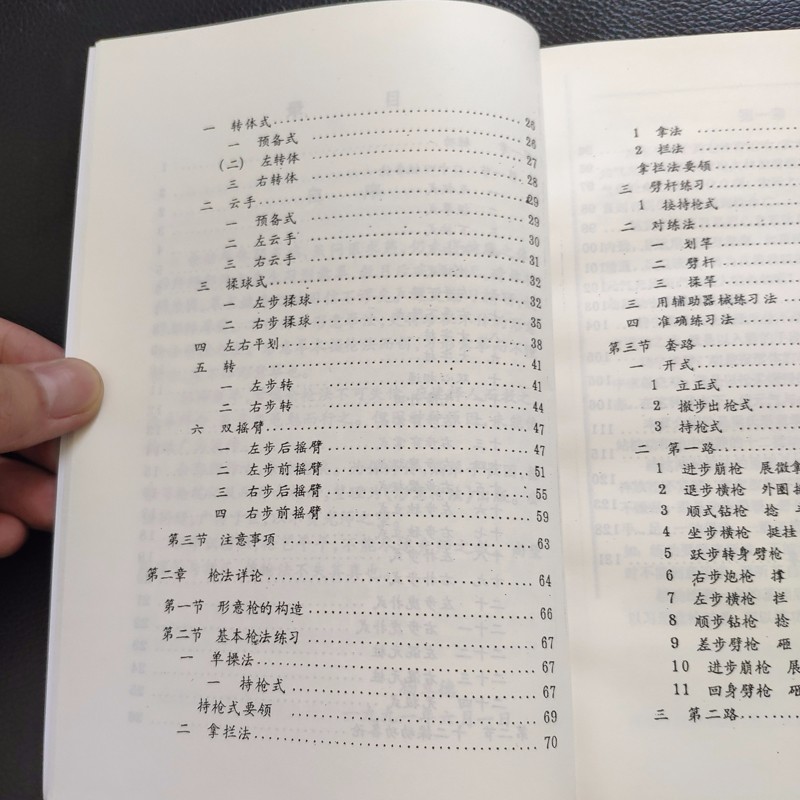 一 转体式 26
一 预备式 26
(二) 左转体 27
三 右转体 28
二 云手 29
一 预备式 29
二 左云手 30
三 右云手 31
三 揉球式 32
一 左步揉球 32
二 右步揉球 35
四 左右平划 38
五 转 41
一 左步转 41
二 右步转 44
六 双摇臂 47
一 左步后摇臂 47
二 左步前摇臂 51
三 右步后摇臂 55
四 右步前摇臂 59
第三节 注意事项 63
第二章 枪法详论 64
第一节 形意枪的构造 66
第二节 基本枪法练习 67
一 单操法 67
一 持枪式 67
持枪式要领 69
二 拿拦法 70
1 拿法
2 拦法
拿拦法要领
三 劈杆练习
1 接持枪式
二 对练法
一 划竿
二 劈杆
三 揉竿
三 用辅助器械练习法
四 准确练习法
第三节 套路
一 开式
1 立正式
2 撤步出枪式
3 持枪式
二 第一路
1 进步崩枪 展微拿
2 退步横枪 外圈
3 顺式钻枪 捻
4 坐步横枪 挺挂
5 跃步转身劈枪
6 右步炮枪 撑
7 左步横枪 拦
8 顺步钻枪 捻
9 差步劈枪 砸
10 进步崩枪 展
11 回身劈枪 砸
三 第二路